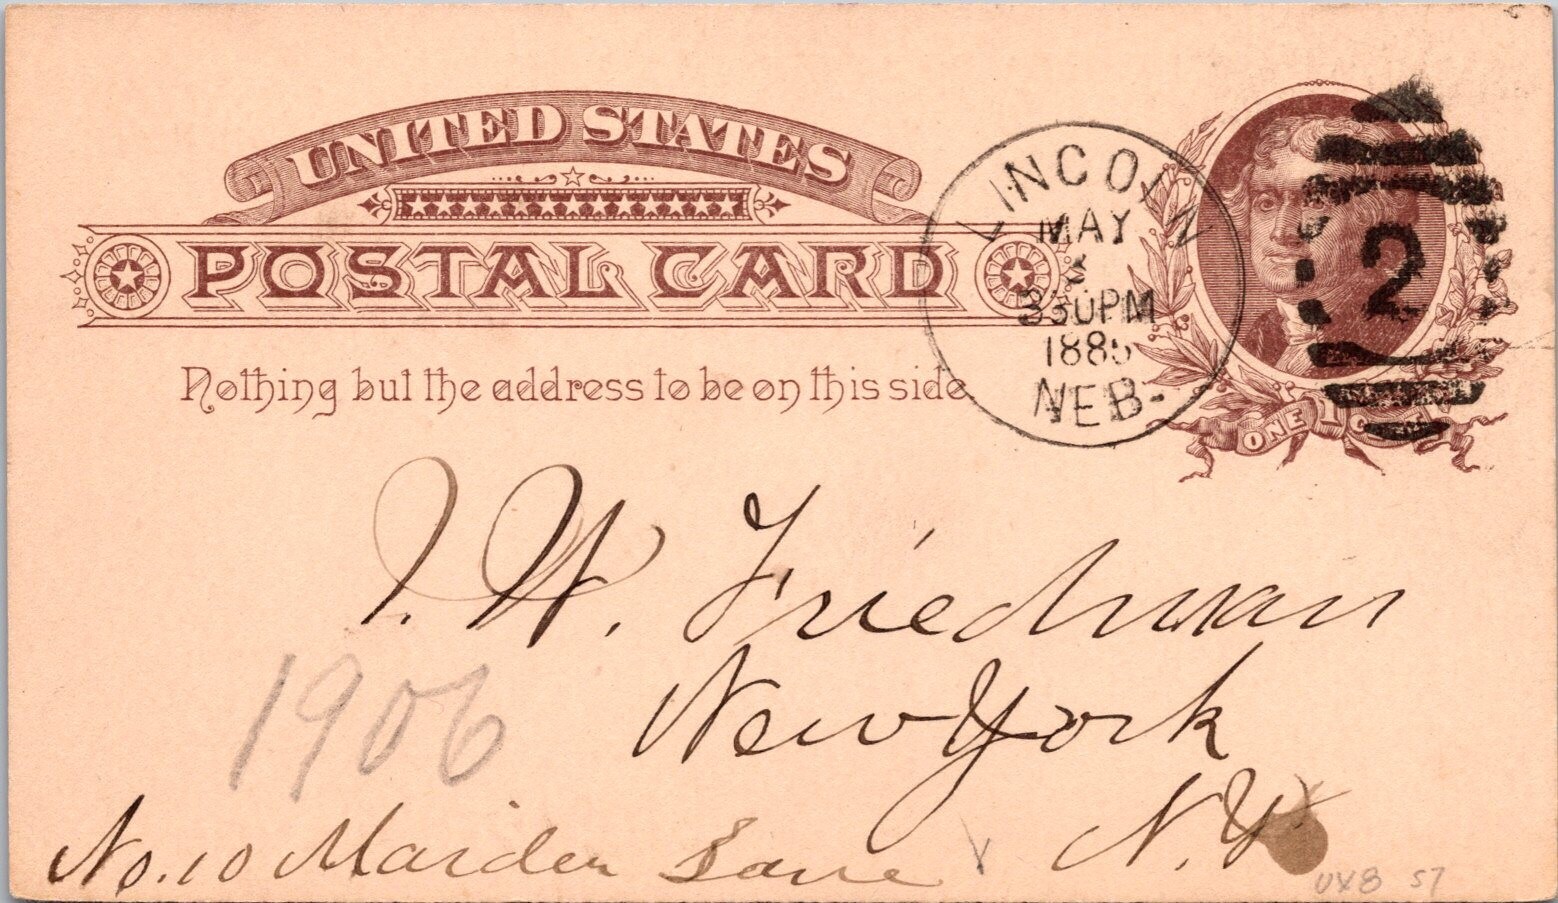 UNITED STATES
POSTAL CARD
Nothing but the address to be on this side
LINCOLN
MAY
330PM
1885
NEB-
2
ONE 1
J. W. Friedman
New York
1906
No. 10 Maiden Lane N.Y.
UX8 S7